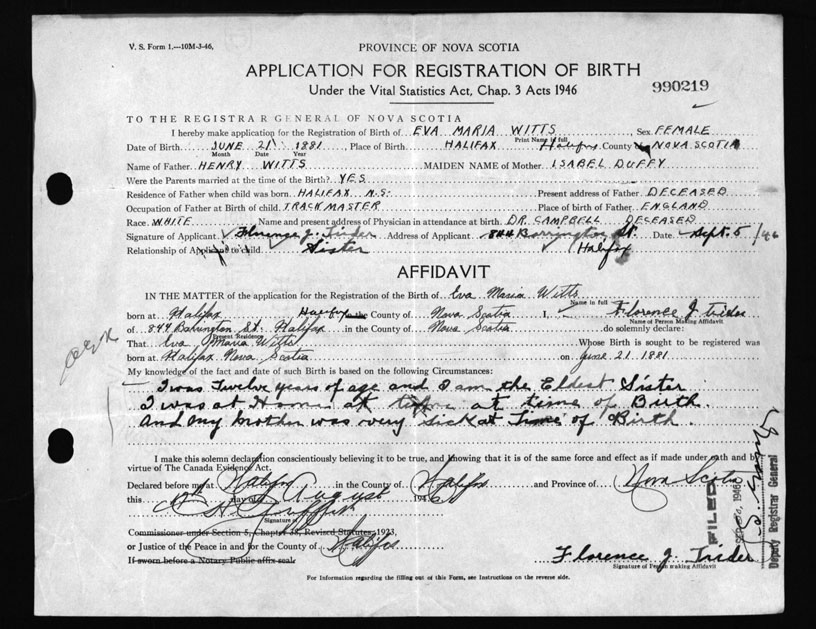 V. S. Form 1.—10M-3-46.
PROVINCE OF NOVA SCOTIA
APPLICATION FOR REGISTRATION OF BIRTH
Under the Vital Statistics Act, Chap. 3 Acts 1946
990219
TO THE REGISTRAR GENERAL OF NOVA SCOTIA
I hereby make application for the Registration of Birth of EVA MARIA WITTS Sex FEMALE
Print Name in full
Date of Birth JUNE 21 1881 Place of Birth HALIFAX Halifax County of NOVA SCOTIA
Month Date Year
Name of Father HENRY WITTS MAIDEN NAME of Mother ISABEL DUFFY
Were the Parents married at the time of the Birth? YES
Residence of Father when child was born HALIFAX, N.S. Present address of Father DECEASED
Occupation of Father at Birth of child TRACKMASTER Place of birth of Father ENGLAND
Race WHITE Name and present address of Physician in attendance at birth DR. CAMPBELL DECEASED
Signature of Applicant Florence J. Trider Address of Applicant 844 Barrington St. Date Sept. 5/46
Relationship of Applicant to child Sister Halifax
AFFIDAVIT
IN THE MATTER of the application for the Registration of the Birth of Eva Maria Witts
Name in full
born at Halifax Halifax the County of Nova Scotia I, Florence J Trider
Name of Person Making Affidavit
of 844 Barrington St. Halifax in the County of Nova Scotia do solemnly declare:
Present Residence
That Eva Maria Witts Whose Birth is sought to be registered was
born at Halifax Nova Scotia on June 21. 1881.
My knowledge of the fact and date of such Birth is based on the following Circumstances:
I was Twelve years of age and I am the Eldest Sister
I was at Home at time at time of Birth.
And my brother was very Sick at Time of Birth.
I make this solemn declaration conscientiously believing it to be true, and knowing that it is of the same force and effect as if made under oath and by
virtue of The Canada Evidence Act.
Declared before me at Halifax in the County of Halifax and Province of Nova Scotia
this day of August 1946
Signature
Commissioner under Section 5, Chapter 38, Revised Statutes, 1923,
or Justice of the Peace in and for the County of Halifax
If sworn before a Notary Public affix seal
Florence J. Trider
Signature of Person making Affidavit
For Information regarding the filling out of this Form, see Instructions on the reverse side.
FILED
1946
Deputy Registrar General